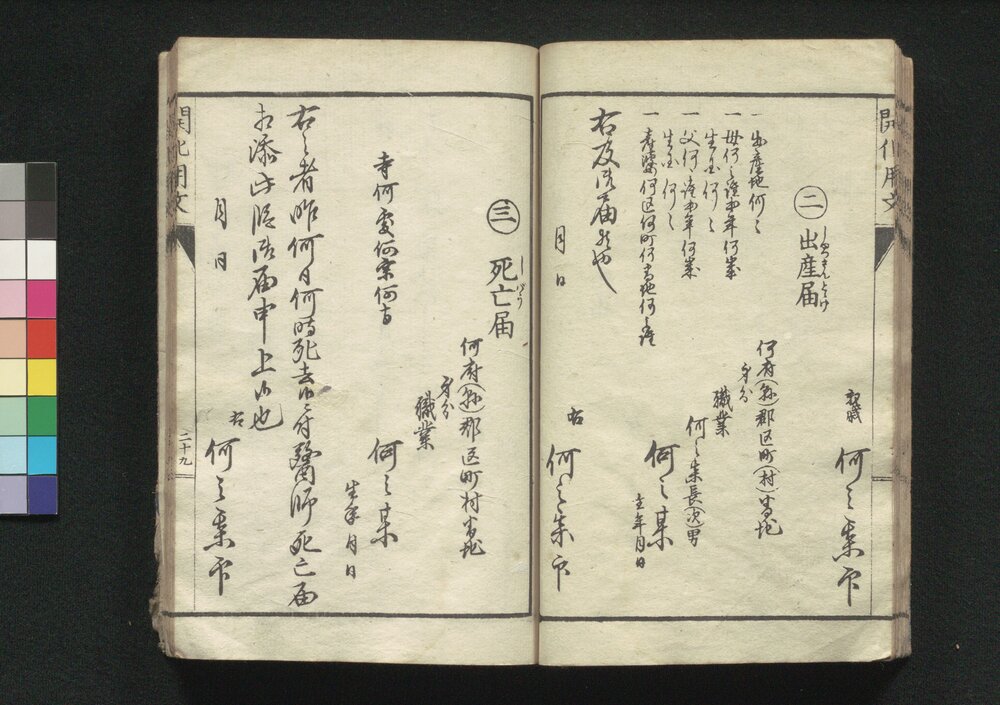 開化用文
親戚
何之某印
㊁出産届
しゆつさんとゞけ
何府(縣)郡区町(村)番地
身分
職業
何之某長(次)男
何之某
生年月日
一出産地何々
一母何之誰第年何歳
生国何々
一父何之誰第年何歳
生国何々
一産婆何区何町何番地何之誰
右及御届候也
月日
右
何之某印
㊂死亡届
しばう
何府(縣)郡区町村番地
身分
職業
何之某
生年月日
寺何宗何
右之者昨何日何時死去候ニ付醫師死亡届
相添此段御届申上候也
月日
右
何之某印
開化用文
二十九